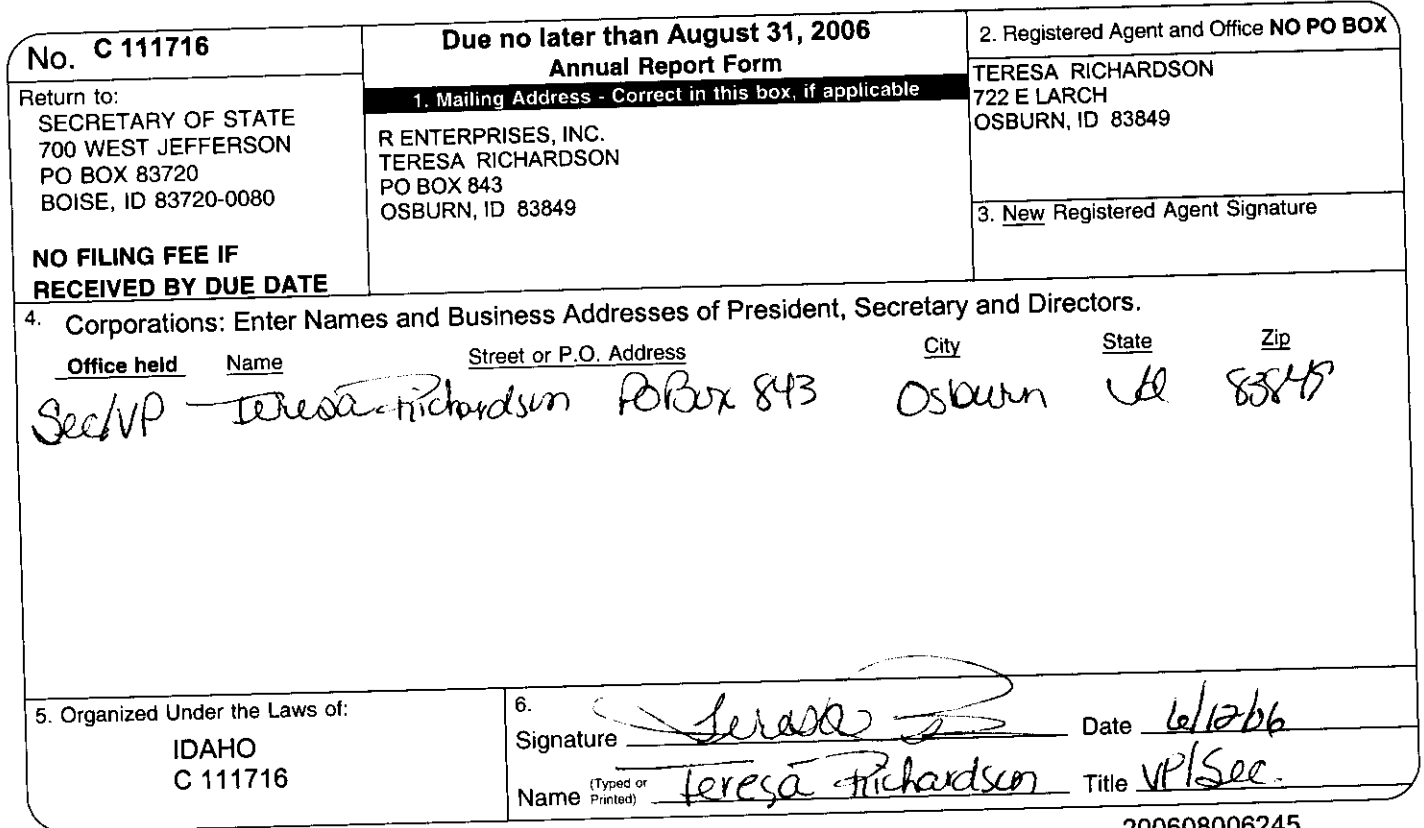 No. C 111716
Return to:
SECRETARY OF STATE
700 WEST JEFFERSON
PO BOX 83720
BOISE, ID 83720-0080
NO FILING FEE IF
RECEIVED BY DUE DATE
Due no later than August 31, 2006
Annual Report Form
1. Mailing Address - Correct in this box, if applicable
R ENTERPRISES, INC.
TERESA RICHARDSON
PO BOX 843
OSBURN, ID 83849
2. Registered Agent and Office NO PO BOX
TERESA RICHARDSON
722 E LARCH
OSBURN, ID 83849
3. New Registered Agent Signature
4. Corporations: Enter Names and Business Addresses of President, Secretary and Directors.
Office held Name Street or P.O. Address City State Zip
Sec/VP Teresa Richardson PO Box 843 Osburn Id 83849
5. Organized Under the Laws of:
IDAHO
C 111716
6.
Signature Teresa Date 6/12/06
Name (Typed or Printed) Teresa Richardson Title VP/Sec.
200608006245